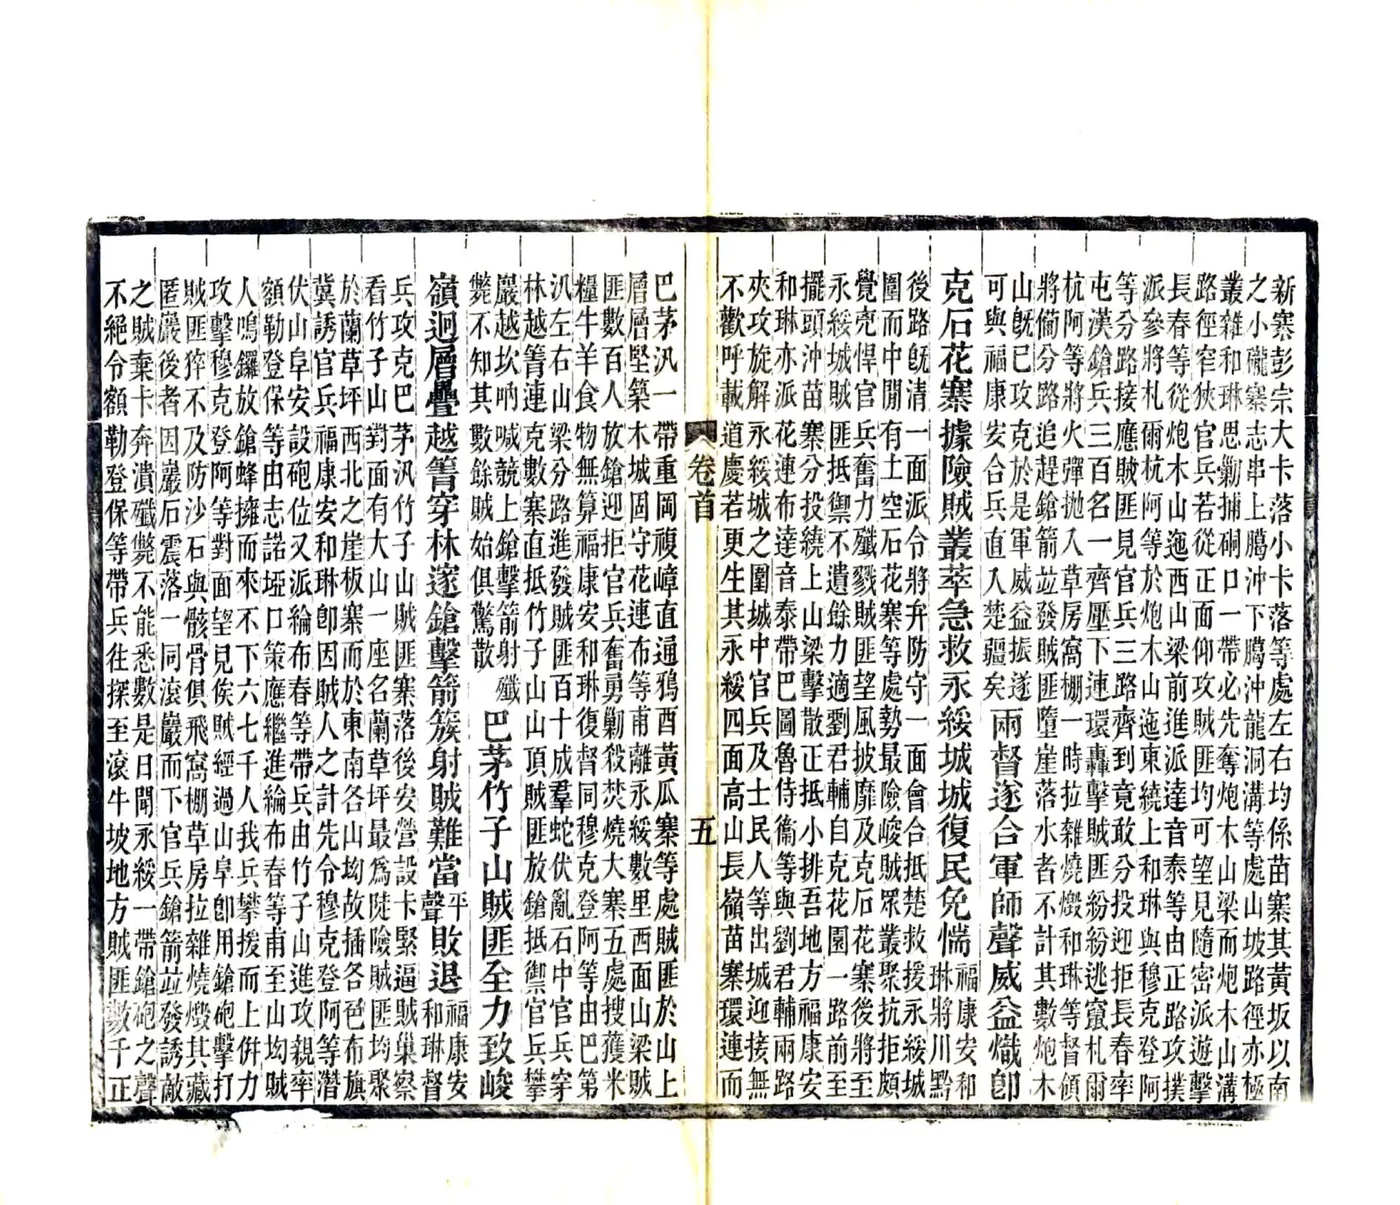 新寨彭宗大卡落小卡落等處左右均係苗寨其黃坂以南
之小隴寨志串上臈沖下臈沖龍洞溝等處山坡路徑亦極
叢雜和琳思勦捕硐口一帶必先奪炮木山梁而炮木山溝
路徑窄狹官兵若從正面仰攻賊匪均可望見隨密派遊擊
長春等從炮木山迤西山梁前進派達音泰等由正路攻撲
派參將札爾杭阿等於炮木山迤東繞上和琳與穆克登阿
等分路接應賊匪見官兵三路齊到竟敢分投迎拒長春率
屯漢鎗兵三百名一齊壓下連環轟擊賊匪紛紛逃竄札爾
杭阿等將火彈拋入草房窩棚一時拉雜燒燬和琳等督領
將備分路追趕鎗箭竝發賊匪墮崖落水者不計其數炮木
山旣已攻克於是軍威益振遂
可與福康安合兵直入楚疆矣兩督逐合軍師聲威益熾卽
克石花寨據險賊叢萃急救永綏城城復民免惴福康安和
琳將川黔
後路旣清一面派令將弁防守一面會合抵楚救援永綏城
圍而中閒有土空石花寨等處勢最險峻賊眾叢聚抗拒頗
覺兇悍官兵奮力殲戮賊匪望風披靡及克石花寨後將至
永綏城賊匪抵禦不遺餘力適劉君輔自克花園一路前至
擺頭沖苗寨分投繞上山梁擊散正抵小排吾地方福康安
和琳亦派花連布達音泰帶巴圖魯侍衞等與劉君輔兩路
夾攻旋解永綏城之圍城中官兵及士民人等出城迎接無
不歡呼載道慶若更生其永綏四面高山長嶺苗寨環連而
卷首
五
巴茅汛一帶重岡複嶂直通鴉酉黃瓜寨等處賊匪於山上
層層堅築木城固守花連布等甫離永綏數里西面山梁賊
匪數百人放鎗迎拒官兵奮勇勦殺焚燒大寨五處搜獲米
糧牛羊食物無算福康安和琳復督同穆克登阿等由巴第
汛左右山梁分路進發賊匪百十成羣蛇伏亂石中官兵穿
林越箐連克數寨直抵竹子山山頂賊匪放鎗抵禦官兵攀
巖越坎吶喊競上鎗擊箭射殲
斃不知其數餘賊始俱驚散巴茅竹子山賊匪至力致峻
嶺迥層疊越箐穿林邃鎗擊箭簇射賊難當平聲敗退福康安
和琳督
兵攻克巴茅汛竹子山賊匪寨落後安營設卡緊逼賊巢察
看竹子山對面有大山一座名蘭草坪最爲陡險賊匪均聚
於蘭草坪西北之崖板寨而於東南各山坳故插各色布旗
冀誘官兵福康安和琳卽因賊人之計先令穆克登阿等潛
伏山阜安設砲位又派綸布春等帶兵由竹子山進攻親率
額勒登保等由志諾埡口策應繼進綸布春等甫至山坳賊
人鳴鑼放鎗蜂擁而來不下六七千人我兵攀援而上倂力
攻擊穆克登阿等對面望見俟賊經過山阜卽用鎗砲擊打
賊匪猝不及防沙石與骸骨俱飛窩棚草房拉雜燒燬其藏
匿巖後者因巖石震落一同滾巖而下官兵鎗箭竝發誘敵
之賊棄卡奔潰殲斃不能悉數是日聞永綏一帶鎗砲之聲
不絕令額勒登保等帶兵往探至滾牛坡地方賊匪數千正